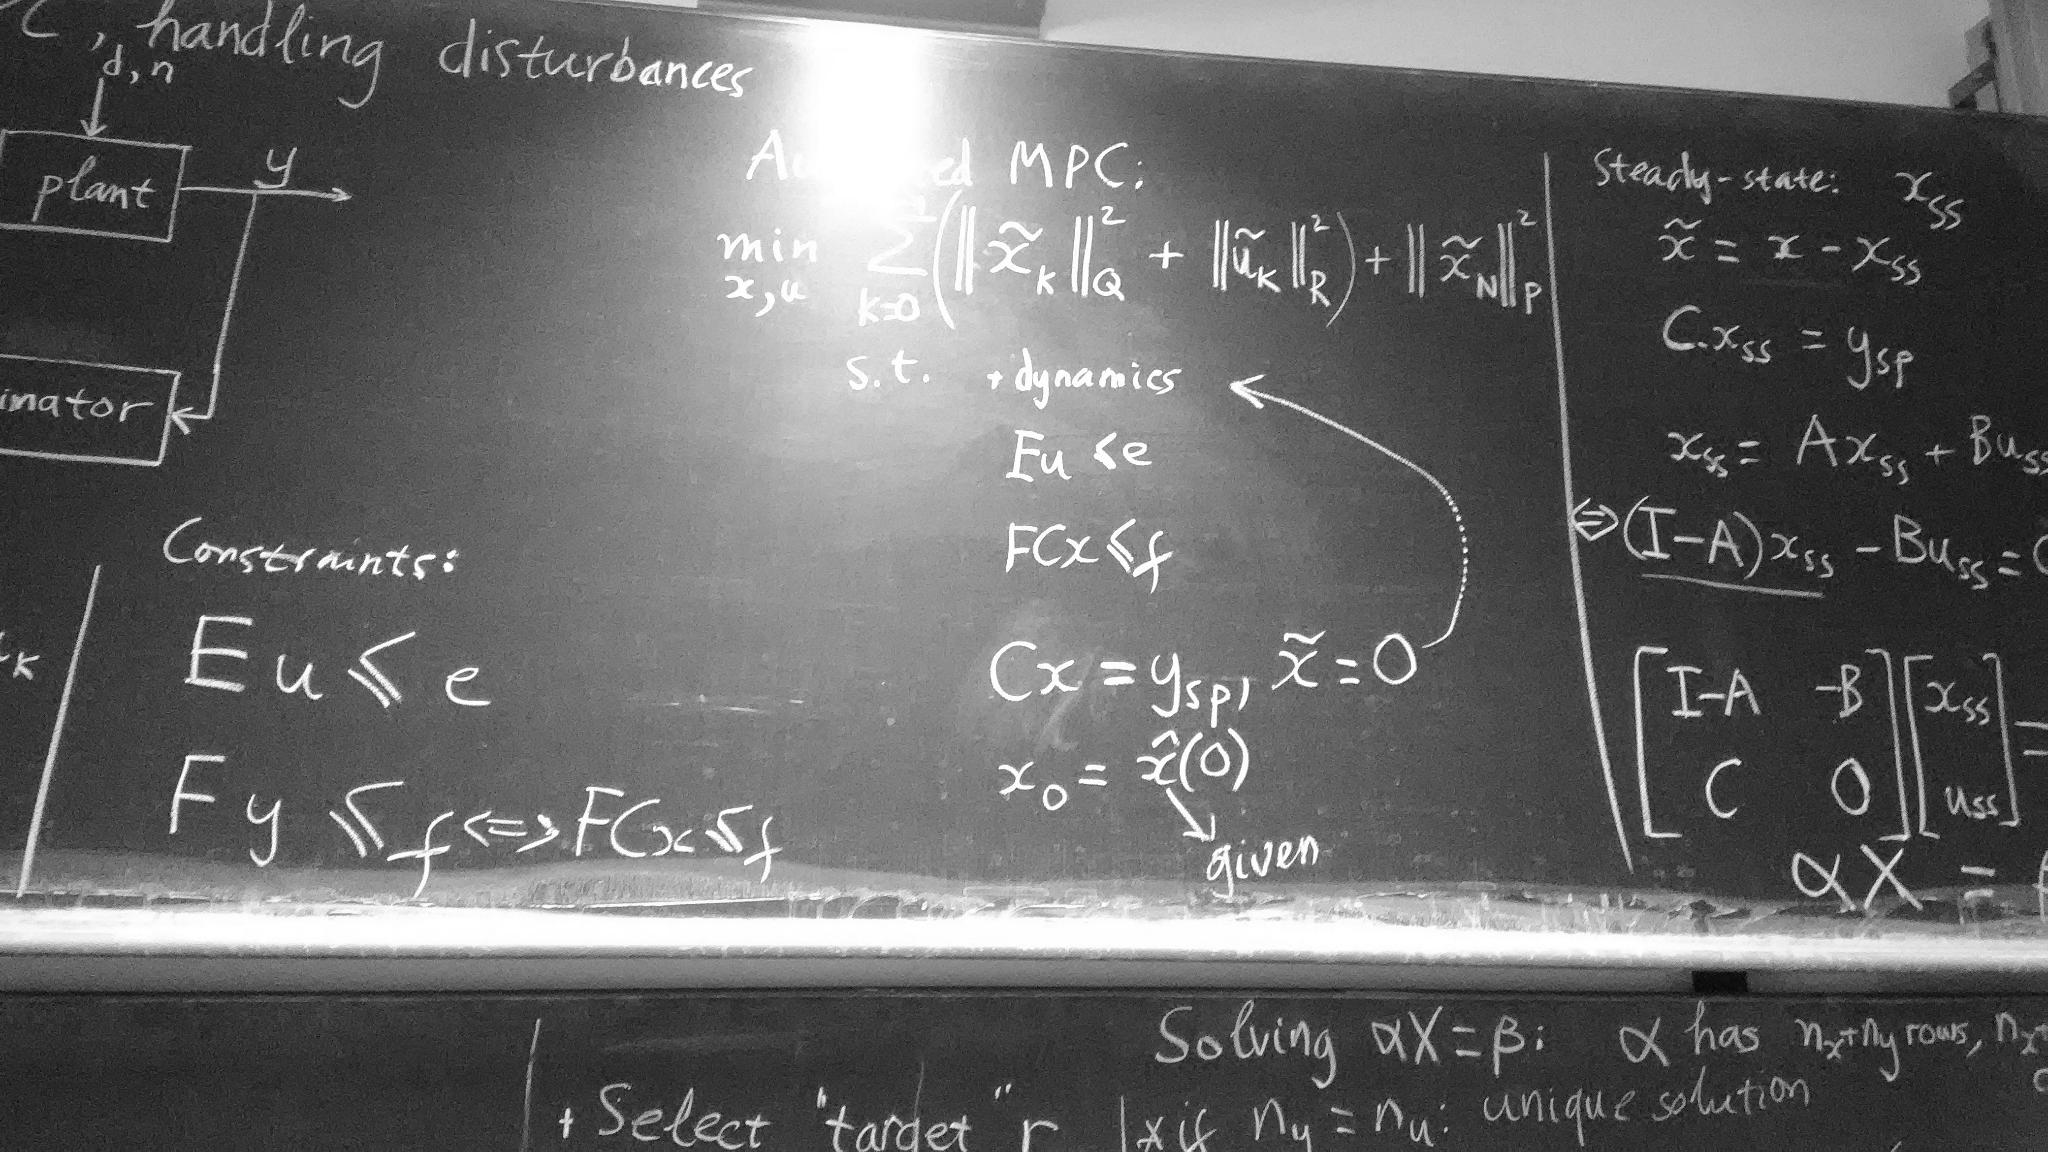 C, handling disturbances
d, n
plant
y
inator
Constraints:
Eu ⩽ e
Fy ⩽ f ⇔ FCx ⩽ f
k
MPC:
min x,u Σ k=0 (‖x̃_k‖²_Q + ‖ũ_k‖²_R) + ‖x̃_N‖²_P
s.t. + dynamics
Eu ⩽ e
FCx ⩽ f
Cx = y_sp, x̃ = 0
x_0 = x̂(0)
given
Steady-state: x_ss
x̃ = x - x_ss
C.x_ss = y_sp
x_ss = Ax_ss + Bu_ss
⇔ (I-A)x_ss - Bu_ss = 0
[I-A -B] [x_ss] =
[C 0] [u_ss]
αX =
Solving αX = β: α has n_x+n_y rows, n_x+
+ Select "target" r
* if n_y = n_u: unique solution